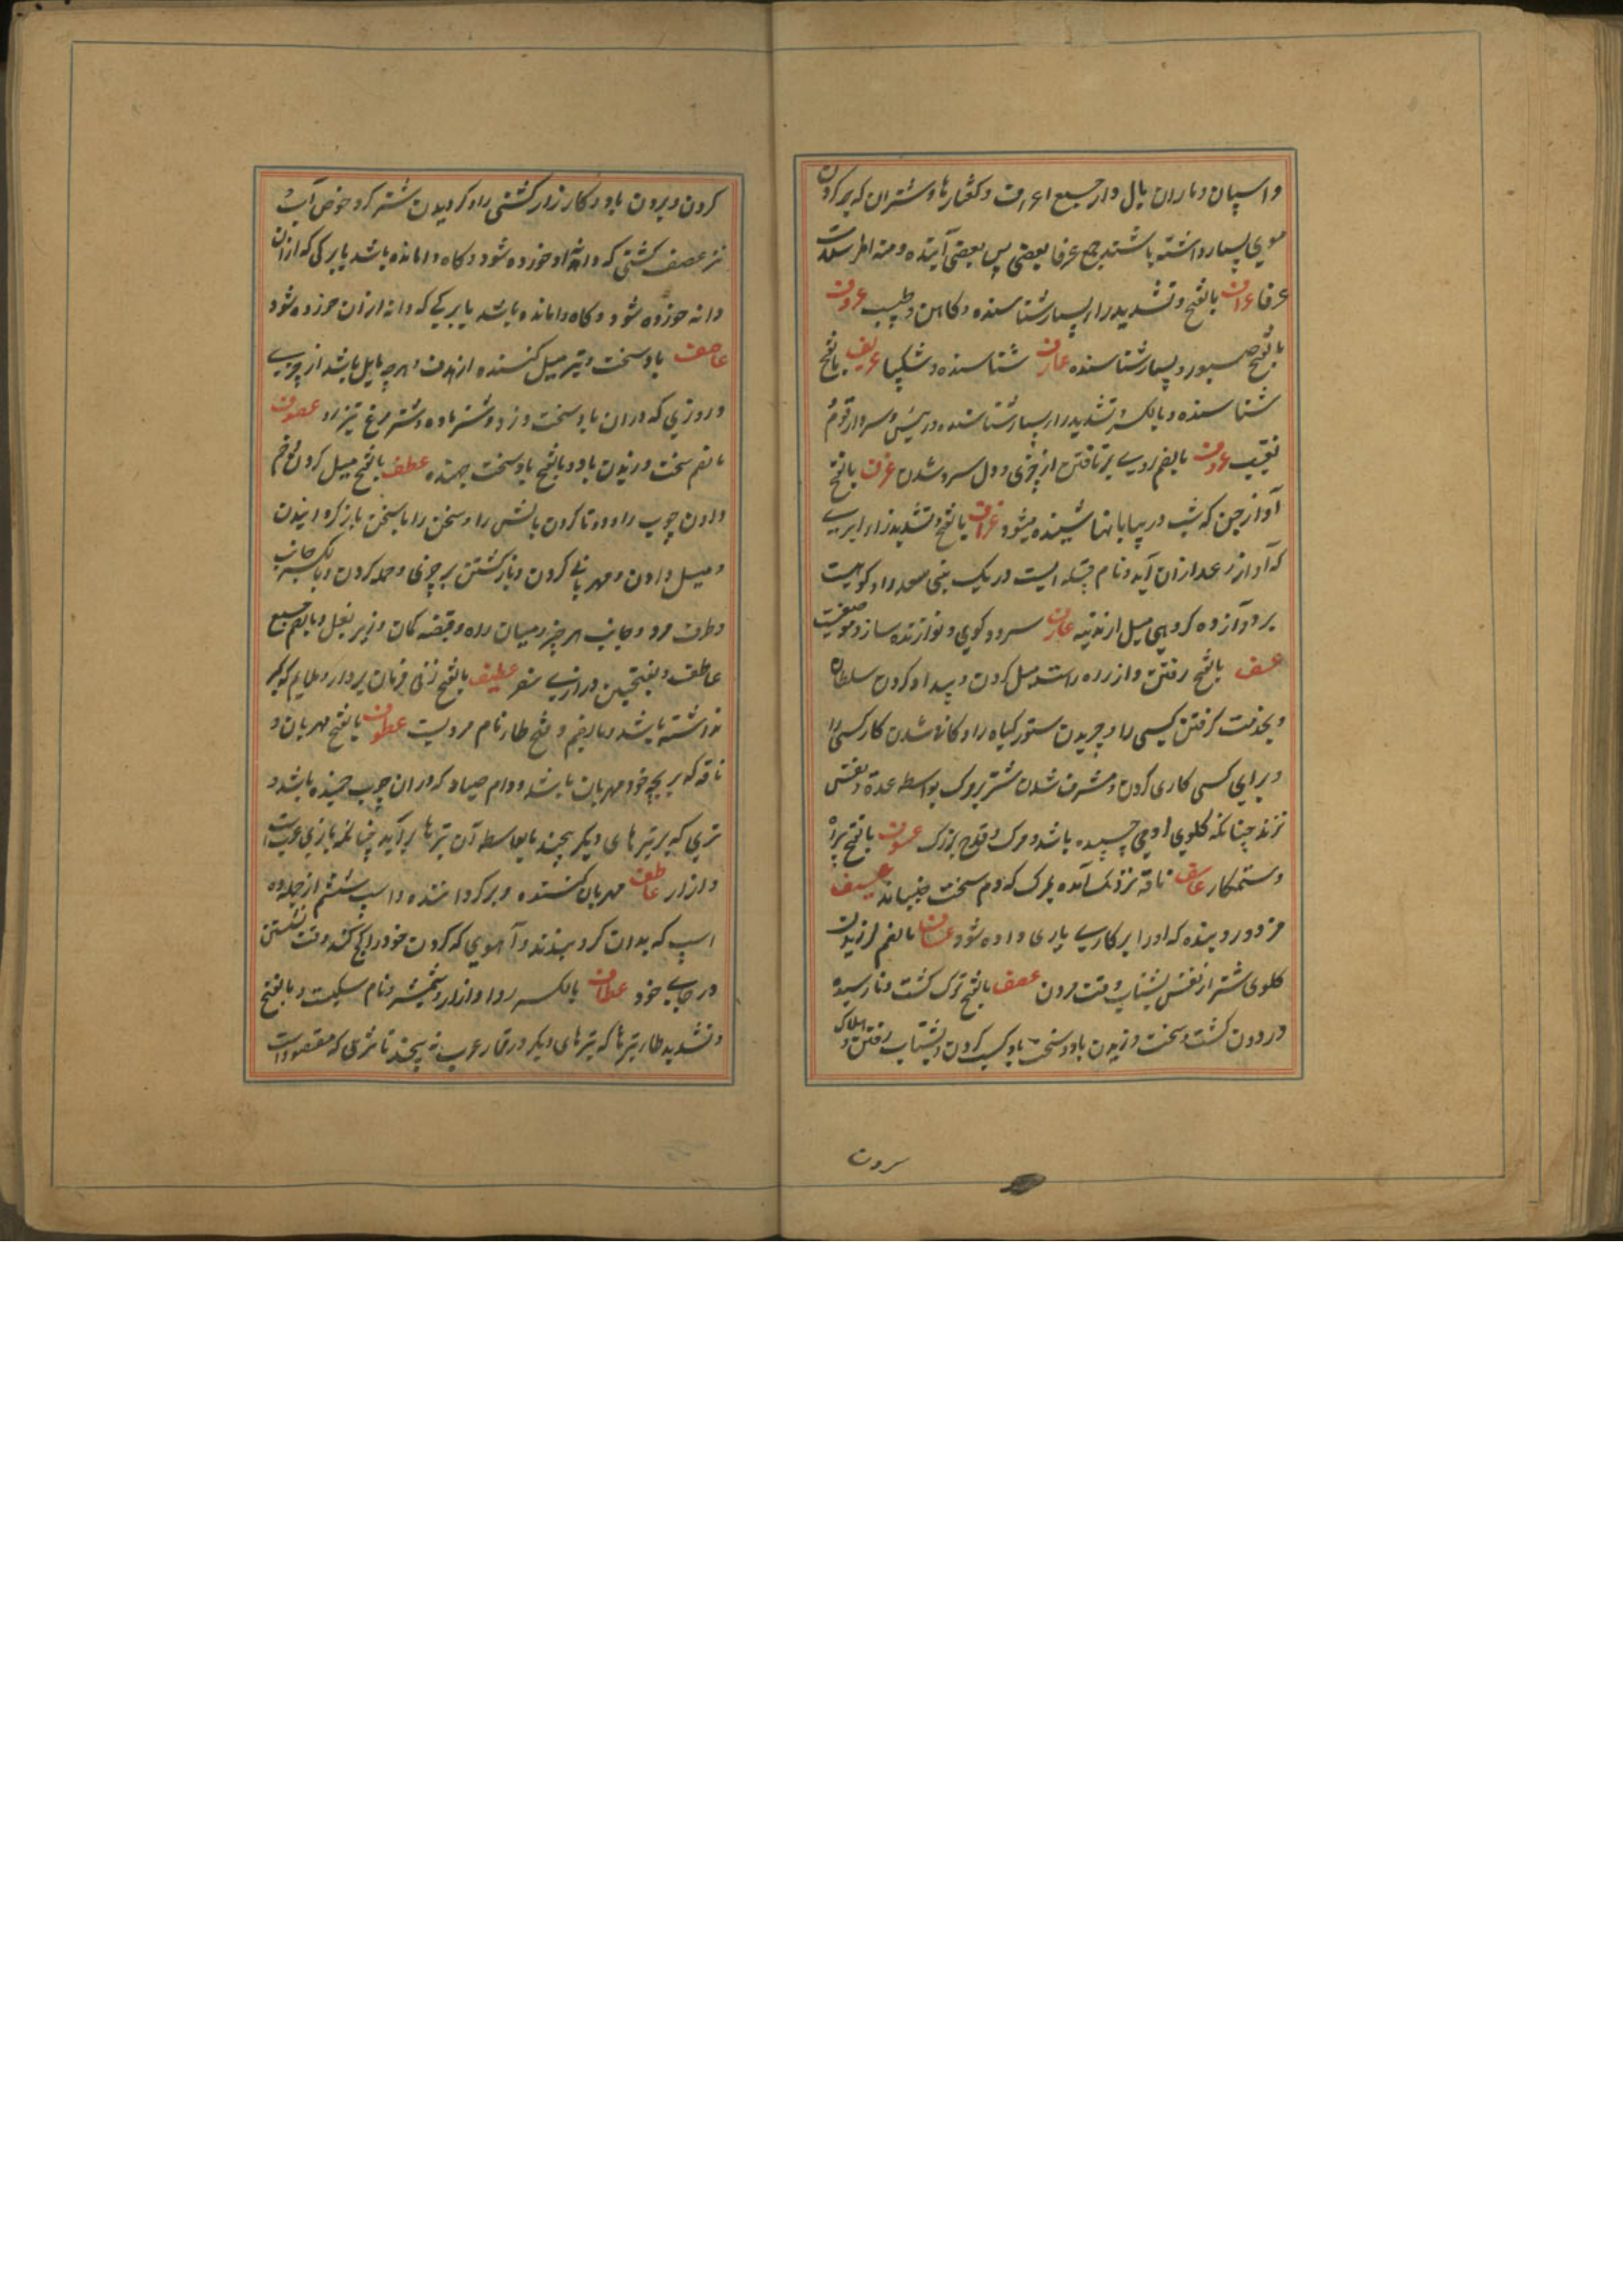 و اسپان و ماران یال دار جمیع اعرف و کفتارها و شتران که بر گردن
موی بسیار داشته باشند جمع عرفا بعضی پس بعضی آینده و منه المرسلات
عرفا عراف بالفتح و تشدید را بسیار شناسنده و کاهن و طبیب عروف
بالفتح صبور و بسیار شناسنده عارف شناسنده و شکیبا عریف بالفتح
شناسنده و بالکسر و تشدید را بسیار شناسنده و رئیس و سردار قوم
نقیب عزوف بالضم روی برتافتن از چیزی و دل سرد شدن عزف بالفتح
آواز جن که شب در بیابانها شنیده میشود عزاف بالفتح و تشدید زا ابری
که آواز رعد ازان آید و نام قبیله ایست و ریگ بنی سعد را و کوهیست
بر دوازده کروهی میل از مدینه عازف سرود گوی و نوازنده ساز و موضعیست
عسف بالفتح رفتن و از راه راست میل کردن و بیداد کردن سلطان
و بخدمت گرفتن کسی را و چریدن ستور گیاه را و کافی شدن کار کسی را
و برای کسی کاری کردن و مشرف شدن شتر بر مرگ بواسطه غده و نفس
زند چنانکه گلوی او می چسپیده باشد و مرگ و قدح بزرگ عسوف بالفتح
و ستمکار عاسف ناقه نزدیک آمده بمرگ که دم سخت جنباند عسیف
مزدور و بنده که او را بر کاری یاری داده شود عساف بالضم لرزیدن
گلوی شتر از نفس بشتاب وقت مردن عصف بالفتح ترک کشت و نارسیده
درودن کشت و سخت وزیدن باد و سخت باد کسب کردن و بشتاب رفتن و هلاک
سرون
کردن و بردن باد و کارزار کشتی را و گردیدن شتر گرد حوض آب
نیز عصف کشتی که دانه او خورده شود و کاه وامانده باشد یا برگی که ازان
دانه خورده شود و کاه وامانده باشد یا برگی که دانه ازان خورده شود
عاصف باد سخت و تیر میل کننده از هدف و هر چه مایل باشد از چیزی
و روزی که دران باد سخت وزد و شتر ماده و شتر مرغ تیز رو عصوف
بالضم سخت وزیدن باد و بالفتح باد سخت جهنده عطف بالفتح میل کردن و خم
دادن چوب را و دوتا کردن بالش را و سخن را با سخن باز گردانیدن
و میل دادن و مهربانی کردن و بازگشتن بر چیزی و حمله کردن و بالکسر جانب
و طرف مرد و جانب هر چیز و میان راه و قبضه کمان و زیر بغل و بالضم جمع
عاطف و بفتحتین درازی مژه عطیف بالفتح زنی فرمان بردار و ملایم که کبر
نداشته باشد و بالضم و فتح طا نام مردیست عطوف بالفتح مهربان و
ناقه که بر بچه خود مهربان باشد و دام صیاد که دران چوب خمیده باشد و
تیری که بر تیرهای دیگر پیچند یا بواسطه آن تیرها برآید چنانکه بازی عربست
و ازار عاطف مهربان کننده و برگرداننده و اسپ ششم از جمله ده
اسپ که بدان گرو بندند و آهوی که گردن خود را کج کند وقت نشستن
در جای خود عطاف بالکسر ردا و ازار و شمشیر و نام سگیست و بالفتح
و تشدید طا تیرها که تیرهای دیگر در قمار عرب پیچند تا تیری که مقصود است